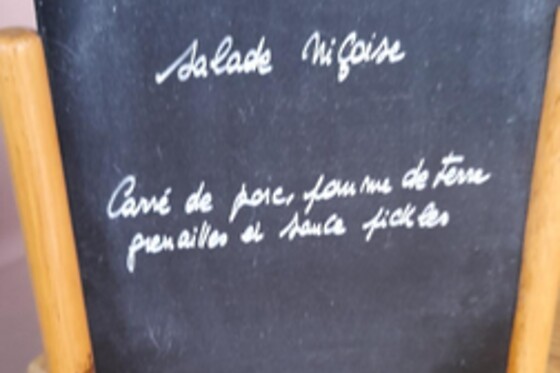 Salade Niçoise
Carré de porc, pomme de terre
grenailles et sauce pickles